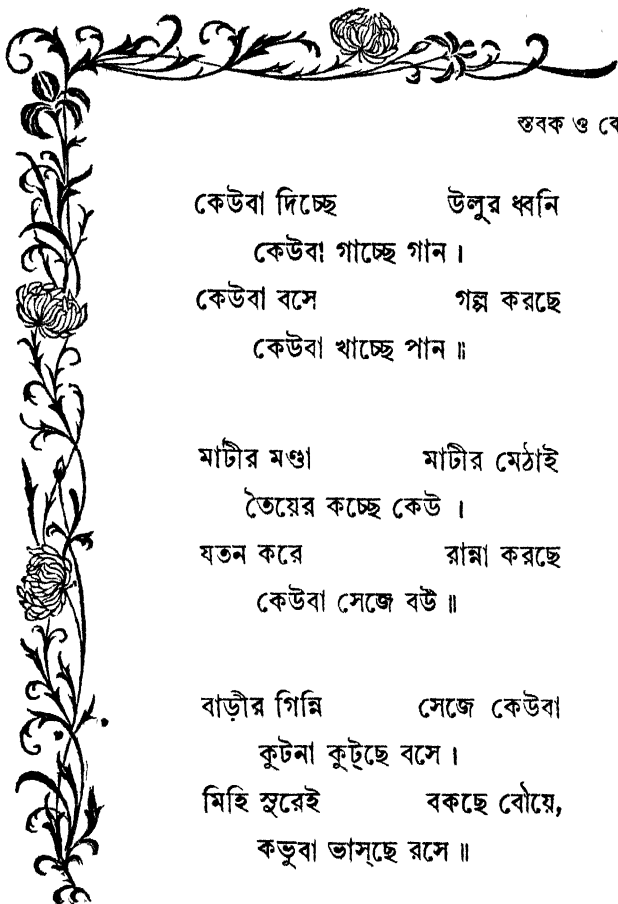 স্তবক ও
কেউবা দিচ্ছে উলুর ধ্বনি
কেউবা গাচ্ছে গান ।
কেউবা বসে গল্প করছে
কেউবা খাচ্ছে পান ॥
মাটীর মণ্ডা মাটীর মেঠাই
তৈয়ের কচ্ছে কেউ ।
যতন করে রান্না করছে
কেউবা সেজে বউ ॥
বাড়ীর গিন্নি সেজে কেউবা
কুটনা কুট্‌ছে বসে ।
মিহি সুরেই বকছে বৌয়ে,
কভুবা ভাস্‌ছে রসে ॥